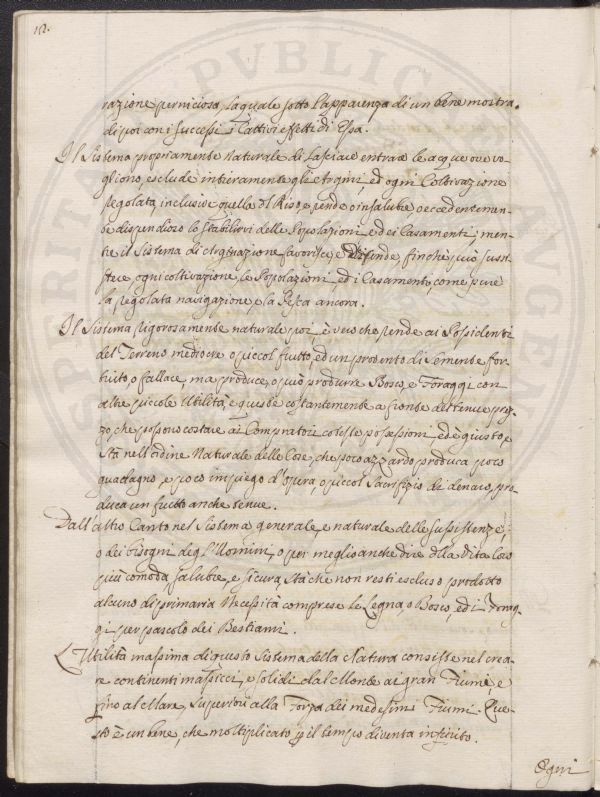 152.
razione perniciosa, la quale sotto l'apparenza di un bene mostra
di poi con i successi i cattivi effetti di Essa.
Il Sistema propriamente Naturale di lasciare entrare le acque ove vo-
gliono, esclude intieramente gli Argini, ed ogni Coltivazione
regolata, inclusive quella di Riso, e rende o insalubre o eccedentemen-
te dispendioso lo stabilirvi delle Popolazioni e dei Casamenti; men-
tre il Sistema di Arginazione favorisce, e difende, finchè può sussi-
stere ogni coltivazione, le Popolazioni, ed i Casamenti, come pure
la regolata navigazione, e la Pesca ancora.
Il Sistema rigorosamente naturale poi, è vero che rende ai Possidenti
del Terreno mediocre o piccol frutto, ed un prodotto di Semente for-
tuito, o fallace, ma produce, o può produrre Bosco, e Foraggi con
altre piccole Utilità, e queste costantemente a fronte del tenue prez-
zo, che possono costare ai Compratori coteste possessioni ed è giusto, e
stà nell'ordine Naturale delle Cose, che poco azzardo produca poco
guadagno, e poco impiego d'opera, o piccol Sacrifizio di denaro, pro-
duca un frutto anche tenue.
Dall'altro Canto nel Sistema generale, e naturale delle sussistenze,
o dei bisogni degl'Uomini, o per meglio anche dire della Vita loro
più comoda salubre, e sicura, stà che non resti escluso prodotto
alcuno di primaria Necessità comprese le Legna, o Bosco, ed i Forag-
gi per pascolo dei Bestiami.
L'Utilità massima di questo Sistema della Natura consiste nel crea-
re continenti massicci, e solidi dal Monte ai gran Fiumi, e
fino al Mare, superiori alla Forza dei medesimi Fiumi. Que-
sto è un bene, che moltiplicato p il tempo diventa infinito.
Ogni